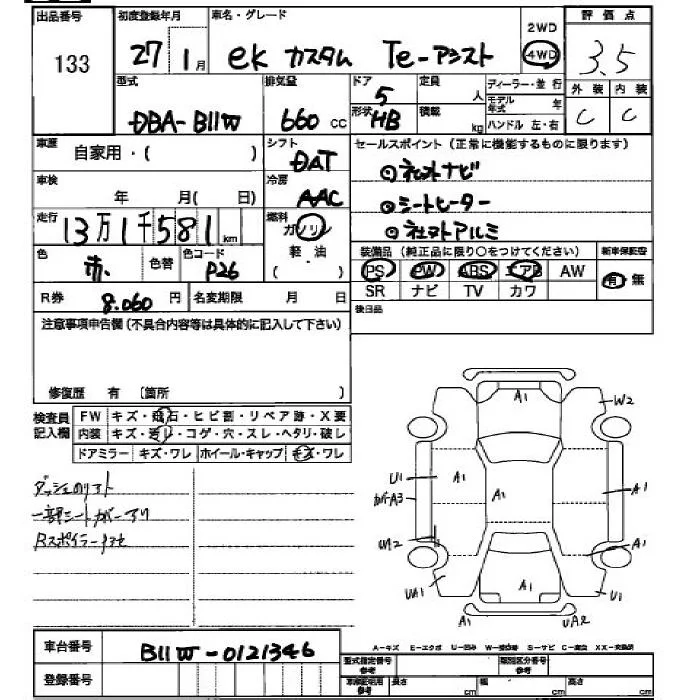 出品番号 初度登録年月 車名・グレード 2WD 評価点
133 27 1月 ek カスタム Te-アシスト 4WD 3.5
型式 排気量 ドア 定員 ディーラー・並行 外装 内装
DBA-B11W 660cc 5 人 モデル年式 年 C C
形状 HB 積載 kg ハンドル 左・右
車歴 自家用・( ) シフト DAT セールスポイント(正常に機能するものに限ります)
車検 年 月(日) 冷房 AAC
走行 13万1千581km 燃料 ガソリン 軽・油 ( )
色 赤 色替 色コード P26 装備品(純正品に限り○をつけてください) 新車保証書
PS PW ABS エアB AW 有 無
SR ナビ TV カワ
R券 8.060円 名変期限 月 日 後日品
注意事項申告欄(不具合内容等は具体的に記入して下さい)
修復歴 有(箇所 )
検査員記入欄 FW キズ・飛石・ヒビ割・リペア跡・X要
内装 キズ・汚レ・コゲ・穴・スレ・ヘタリ・破レ
ドアミラー キズ・ワレ ホイール・キャップ キズ・ワレ
一部シートカバーアリ
A1
W2
U1
A1
A1
カバーA3
A1
A1
A1
UA1
A1
U1
A1
UA2
A-キズ E-エクボ U-凹み
車台番号 B11W-0121346
登録番号
型式指定番号 参考 類別区分番号 参考
長さ cm 幅 cm 高さ cm